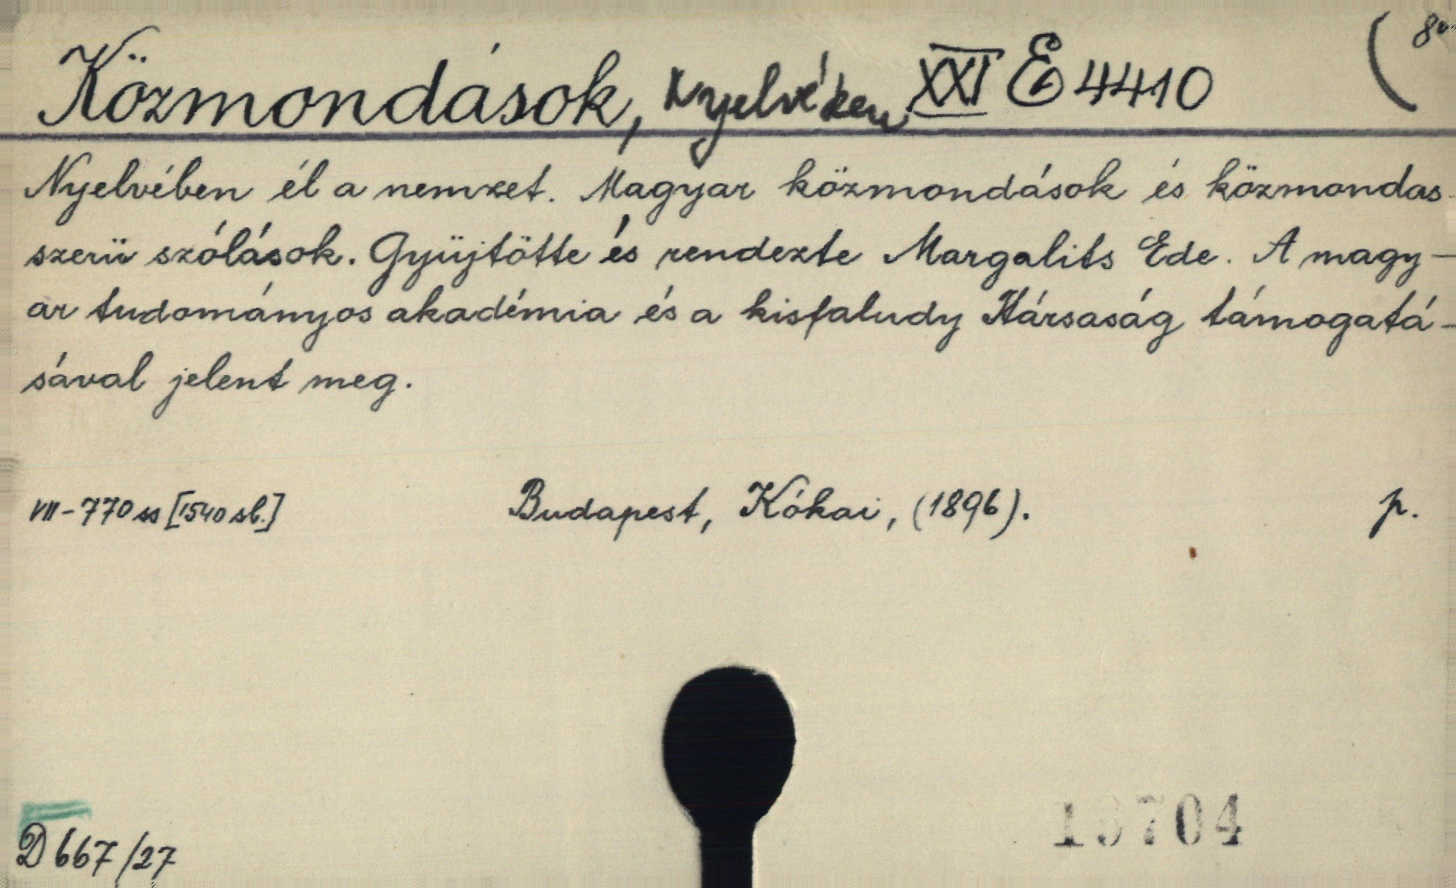 Közmondások, Nyelvében XXI E 4410 (8°
Nyelvében él a nemzet. Magyar közmondások és közmondas-
szerü szólások. Gyüjtötte és rendezte Margalits Ede. A magy-
ar tudományos akadémia és a kisfaludy Társaság támogatá-
sával jelent meg.
VII-770 ss [1540 sl.] Budapest, Kókai, (1896). p.
D 667/27